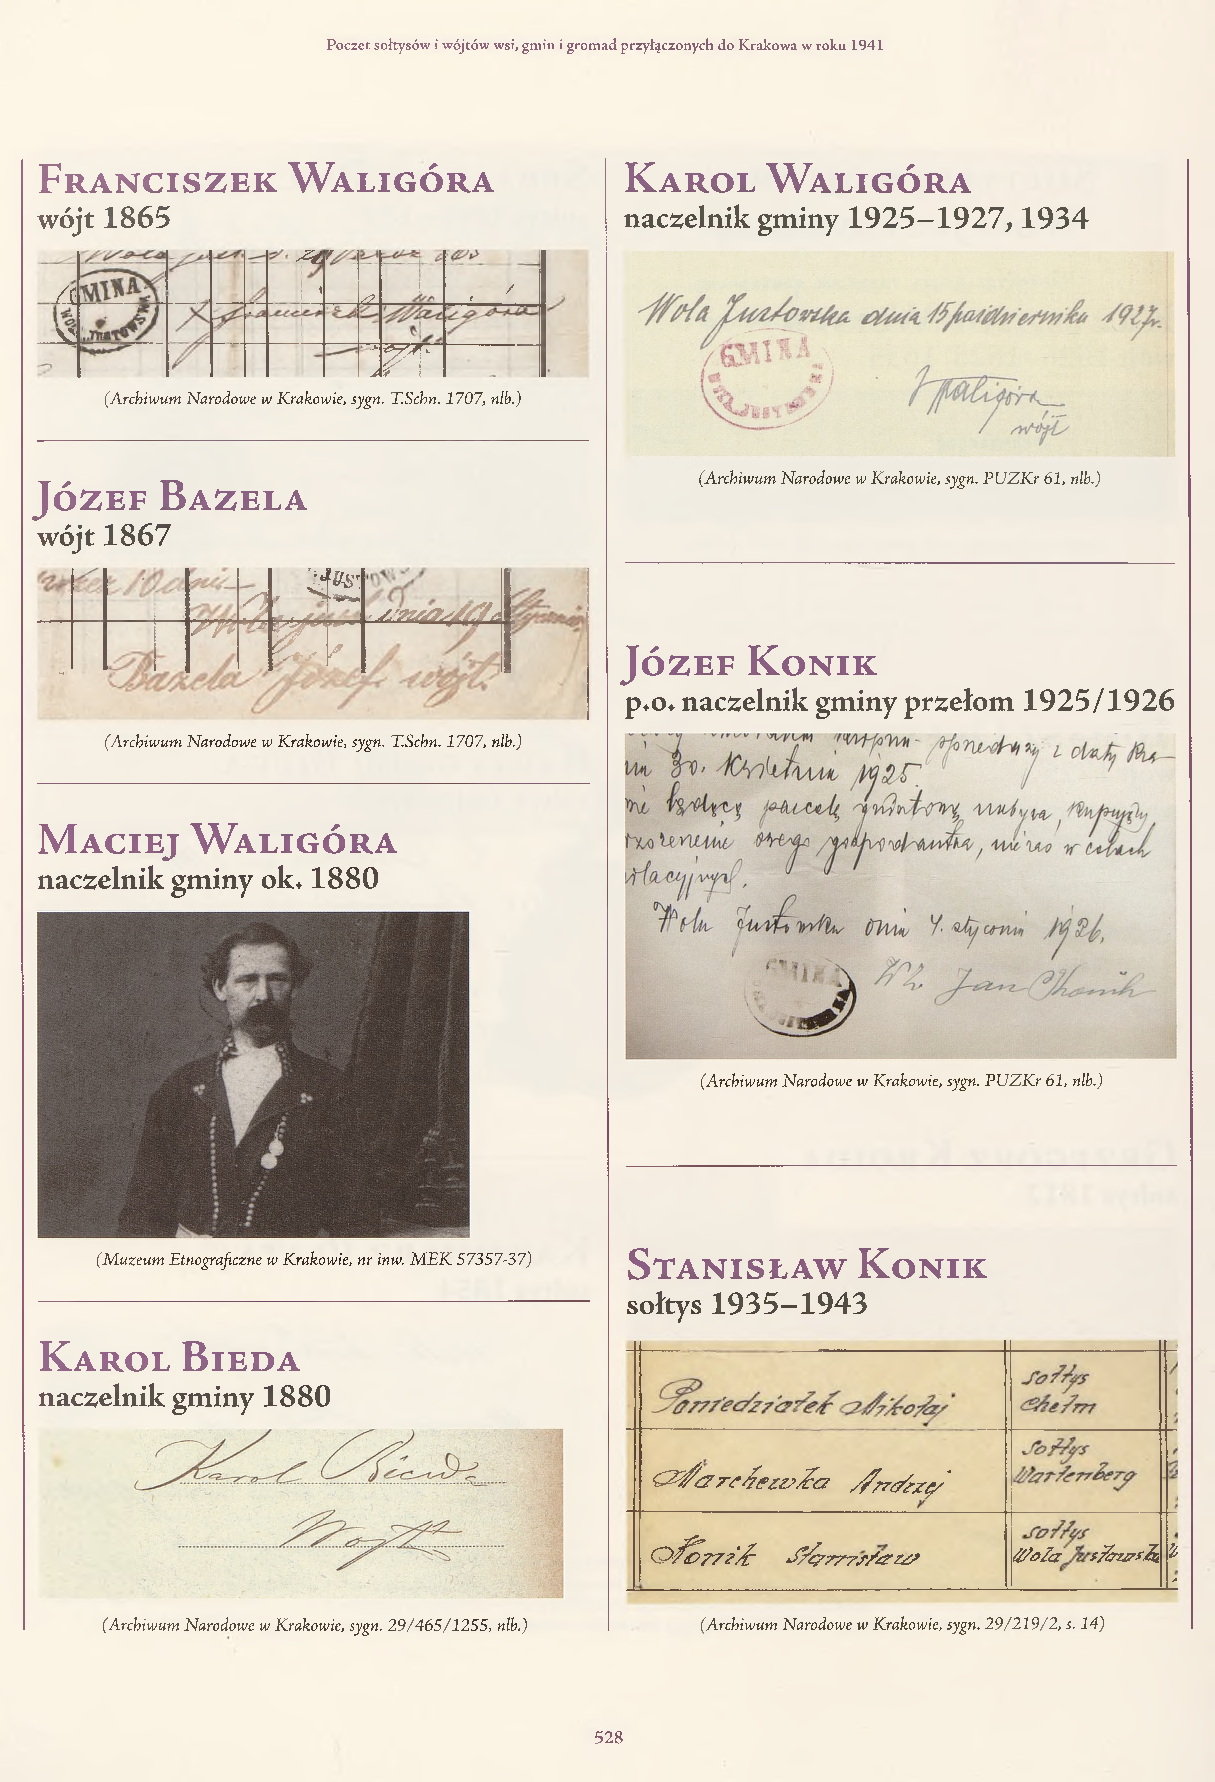 Poczet sołtysów i wójtów wsi, gmin i gromad przyłączonych do Krakowa w roku 1941
Franciszek Waligóra
wójt 1865
GMINA
Franciszek Waligóra
wójt
(Archiwum Narodowe w Krakowie, sygn. T.Schn. 1707, nlb.)
Józef Bazela
wójt 1867
Wola just dnia 19 Stycznia
Bazela Józef wójt.
(Archiwum Narodowe w Krakowie, sygn. T.Schn. 1707, nlb.)
Maciej Waligóra
naczelnik gminy ok. 1880
(Muzeum Etnograficzne w Krakowie, nr inw. MEK 57357-37)
Karol Bieda
naczelnik gminy 1880
Karol Bieda
Wójt
(Archiwum Narodowe w Krakowie, sygn. 29/465/1255, nlb.)
Karol Waligóra
naczelnik gminy 1925–1927, 1934
Wola Justowska dnia 15 października 1927r.
GMINA
Waligóra
wójt
(Archiwum Narodowe w Krakowie, sygn. PUZKr 61, nlb.)
Józef Konik
p.o. naczelnik gminy przełom 1925/1926
sprzedaży z daty Kra-
30. Kwietnia 1925.
parcelę gruntową nabywa, kupujący
gospodarstwa, nie zaś w celach
Wola Justowska dnia 4. stycznia 1926.
GMINA
Wz. Jan Konik
(Archiwum Narodowe w Krakowie, sygn. PUZKr 61, nlb.)
Stanisław Konik
sołtys 1935–1943
Poniedziałek Mikołaj sołtys Chełm
Marchewka Andrzej sołtys Wartenberg
Konik Stanisław sołtys Wola Justowska
(Archiwum Narodowe w Krakowie, sygn. 29/219/2, s. 14)
528